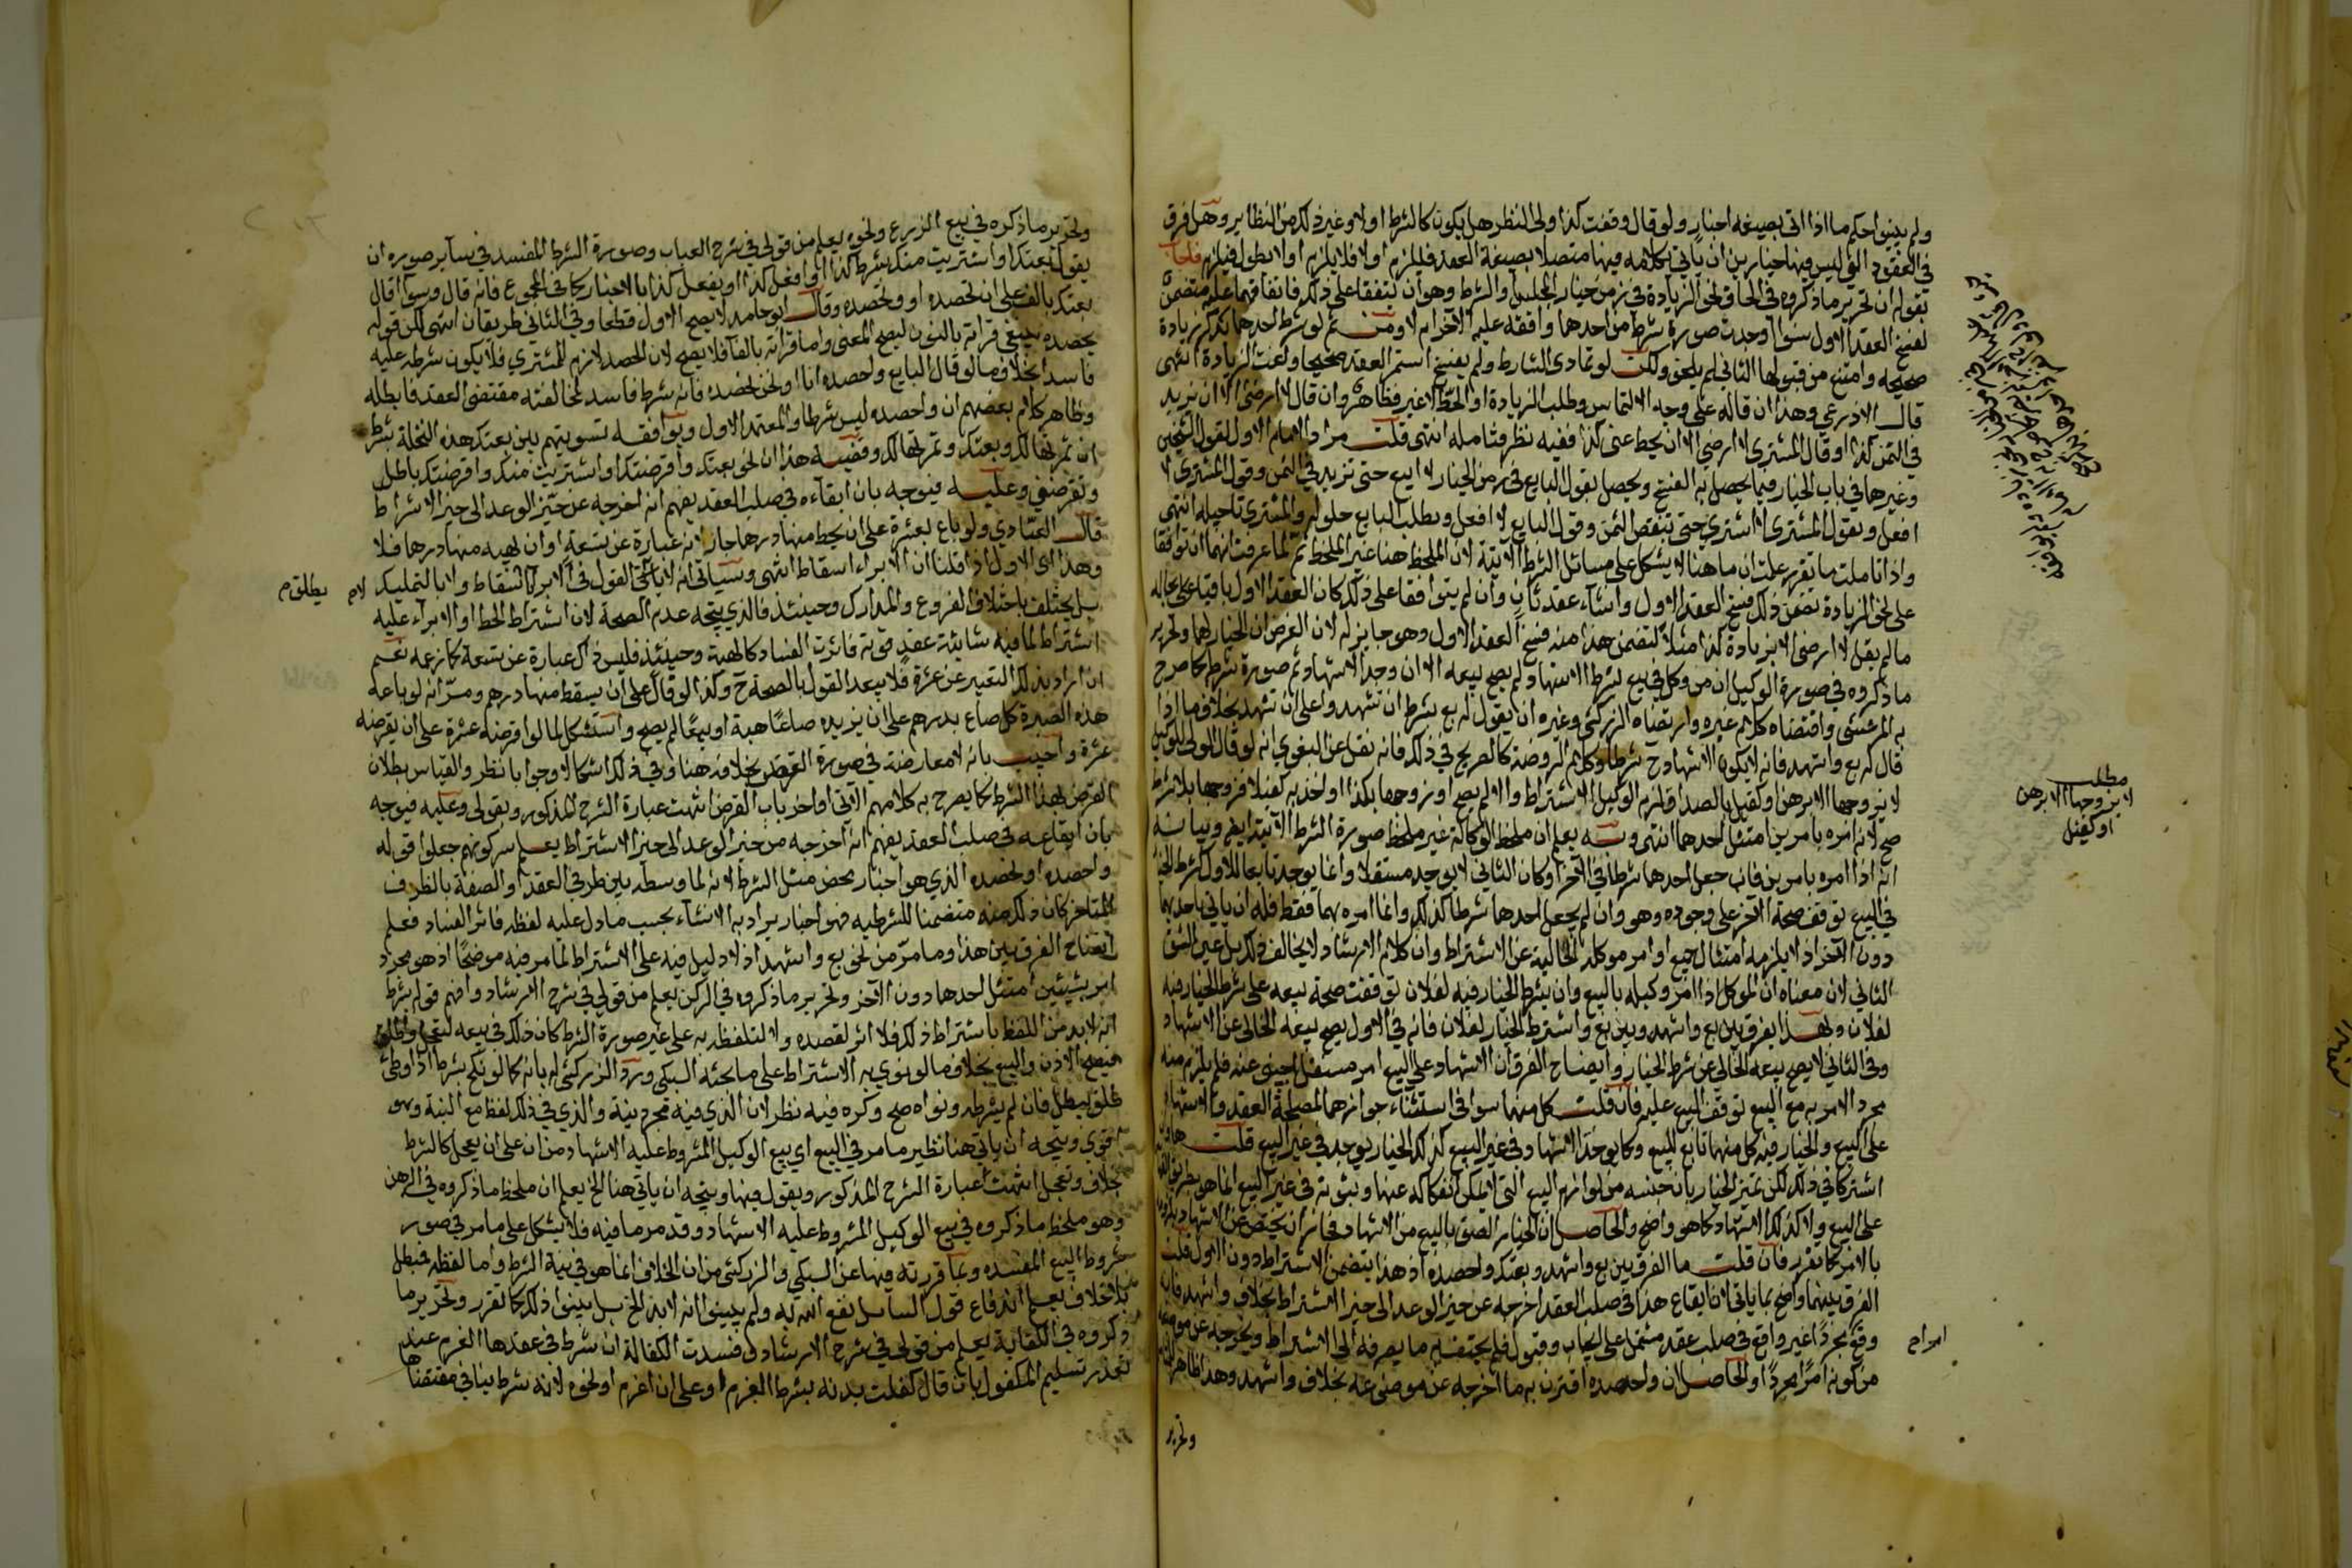 ولم يبينوا حكم ما اذا اتى بصيغة اخبار ولو قال وقفت كذا ولي النظر هل يكون كالشرط او لا وغير ذلك من النظاير وهل فرق
في العقود التي ليس فيها خيار بين ان ياتي بكلامه فيها متصلا بصيغة العقد فيلزم او لا فلا يلزم او لا يطول فيلزم فاجاب
بقوله ان تحرير ما ذكروه في الحاق نحو الزيادة في زمن خيار المجلس او الشرط وهو ان يتفقا على ذلك فاتفاقهما عليه متضمن
لفسخ العقد الاول سوا وجدت صورة شرط من احدهما وافقه عليه الاخر ام لا ومن ثم لو شرط احدهما بذكر زيادة
صحيحه وامتنع من قبولها الثاني لم يلحق ولكن لو تمادى الشارط ولم يفسخ استمر العقد صحيحا ولغت الزيادة انتهى
قال الاذرعي وهذا ان قاله على وجه الالتماس وطلب الزيادة او الحط لا غير فظاهر وان قال لا ارضى الا ان تزيد
في الثمن كذا او قال المشتري لا ارضى الا ان يحط عني كذا ففيه نظر فتامله انتهى قلت مراد الامام الاول لقول الشيخين
وغيرهما في باب الخيار فيما يحصل به الفسخ ويحصل بقول البايع في زمن الخيار لا ابيع حتى تزيد في الثمن وقول المشتري لا
افعل وبقول المشتري لا اشتري حتى تنقص الثمن وقول البايع لا افعل وبطلب البايع حلوله والمشتري تاجيله انتهى
واذا تاملت ما تقرر علمت ان ما هنا لا يشكل على مسائل الشرط الاتية لان الملحظ هنا غير الملحظ ثم لما عرفت انهما ان توافقا
على نحو الزيادة تضمن ذلك فسخ العقد الاول وانشاء عقد ثان وان لم يتوافقا على ذلك كان العقد الاول باقيا على حاله
ما لم يقل لا ارضى الا بزيادة كذا مثلا لتضمن هذا منه فسخ العقد الاول وهو جايز له لان الفرض ان الخيار لهما وتحرير
ما ذكروه في صورة الوكيل ان من وكل في بيع لشرط الاشهاد لم يصح بيعه الا ان وجد الاشهاد ثم صورة شرط كما صرح
به المرعشي واقتضاه كلام غيره وارتضاه الزركشي وغيره ان يقول له بع بشرط ان تشهد او على ان تشهد بخلاف ما اذا
قال له بع واشهد فانه لا يكون الاشهاد ح شرطا وكلام الروضة كالصريح في ذلك فانه نقل عن البغوي انه لو قال الولي للوكيل
لا تزوجها الا برهن او كفيل بالصداق لزم الوكيل الاشتراط والا لم يصح او زوجها بكذا وخذ به كفيلا فزوجها بلا شرط
صح لانه امره بامرين امتثل احدهما انتهى وبه يعلم ان ملحظ الوكالة غير ملحظ صورة الشرط الاتية ايضا وبيانه
انه اذا امره بامرين فان جعل احدهما شرطا في الاخر وكان الثاني لا يوجد مستقلا وانما يوجد تابعا للاول كشرط الخيار
في البيع توقف صحة الاخر على وجوده وهو وان لم يجعل احدهما شرطا كذلك وانما امره بهما فقط فله ان ياتي باحدهما
دون الاخر اذ لا يلزمه امتثال جميع اوامر موكله الخالية عن الاشتراط وان كلام الارشاد لا يخالف ذلك بل عين الشق
الثاني لان معناه ان الموكل اذا امر وكيله بالبيع وان يشرط الخيار فيه لفلان توقفت صحة بيعه على شرط الخيار فيه
لفلان وبهذا يفرق بين بع واشهد وبين بع واشترط الخيار لفلان فانه في الاول يصح بيعه الخالي عن الاشهاد
وفي الثاني لا يصح بيعه الخالي عن شرط الخيار وايضاح الفرق ان الاشهاد على البيع امر مستقل اجنبي عنه فلم يلزم منه
مجرد الامر به مع البيع توقف البيع عليه فان قلت كل منهما سوا في استثناء جوازهما لمصلحة العقد والاشهاد
على البيع والخيار فيه كل منهما تابع للبيع وكما يوجد الاشهاد في غير البيع كذلك الخيار يوجد في غير البيع قلت هما وان
اشتركا في ذلك لكن تميز الخيار بان جنسه من لوازم البيع التي لا يمكن انفكاكه عنها وثبوته في غير البيع انما هو بطريق
على البيع ولا كذلك الاشهاد كما هو واضح والحاصل ان الخيار الصق بالبيع من الاشهاد فجاز ان يختص عن الاشهاد
بالامر كما تقرر فان قلت ما الفرق بين بع واشهد وبعتك واحصده اذ هذا يتضمن الاشتراط دون الاول قلت
الفرق بينهما واضح بما ياتي ان ايقاع هذا في صلب العقد اخرجه عن حيز الوعد الى حيز الاشتراط بخلاف واشهد فانه
وقع مجردا غير واقع في صلب عقد مشتمل على ايجاب وقبول فلم يحتف به ما يصرفه الى الاشتراط ويخرجه عن موضوعه
من كونه امرا مجردا والحاصل ان واحصده اقترن به ما اخرجه عن موضوعه بخلاف واشهد وهذا ظاهر
وتحرير
مطلب
لا يزوجها الا برهن
او كفيل
وتحرير ما ذكره في بيع الزرع ونحوه يعلم من قولي في شرح العباب وصورة الشرط المفسد في ساير صوره ان
يقول بعتك او اشتريت منك بشرط كذا او افعل كذا او يفعل كذا بالاخبار كما في المجموع فانه قال وسوا قال
بعتك بالف على ان تحصده او وتحصده وقال ابو حامد لا يصح الاول قطعا وفي الثاني طريقان انتهى لكن قوله
يحصده ينبغي قراته بالنون ليصح المعنى واما قراته بالفا فلا يصح لان الحصد لازم للمشتري فلا يكون شرطه عليه
فاسدا بخلاف ما لو قال البايع واحصده انا او نحن نحصده فانه شرط فاسد لمخالفته مقتضى العقد فابطله
وظاهر كلام بعضهم ان واحصده ليس شرطا والمعتمد الاول ويوافقه تسويتهم بين بعتك هذه النخلة بشرط
ان ثمرتها لك وبعتك وثمرتها لك وقضية هذا ان نحو بعتك واقرضتك او اشتريت منك واقرضتك باطل
وتقرضني وعليه فيوجه بان ايقاءه في صلب العقد يفهم انه اخرجه عن حيز الوعد الى حيز الاشراط
قال العبادي ولو باع بعشرة على ان يحط منها درهما جاز لانه عبارة عن تسعة او ان يهبه منها درهما فلا
وهذا اى الاول اذا قلنا ان الابراء اسقاط انتهى وسياتي انه لا ياتي القول في الابراء بالاسقاط ولا بالتمليك
بل يختلف باختلاف الفروع والمدارك وحينئذ فالذي يتجه عدم الصحة لان اشتراط الحط او الابراء عليه
اشتراط لما فيه شايبة عقد قوية فاثرت الفساد كالهبة وحينئذ فليس ذاك عبارة عن تسعة كما زعمه نعم
ان اراد بذلك التعبير عن عشرة فلا يبعد القول بالصحة ح وكذا لو قال على ان يسقط منها درهم ومر انه لو باعه
هذه الصبرة كل صاع بدرهم على ان يزيده صاعا هبة او بيعا لم يصح واستشكل لما لو اقرضه عشرة على ان يقرضه
عشرة واجيب بانه لا معارضة في صورة القرض بخلافه هنا وفي ذلك اشكالا وجوابا نظر والقياس بطلان
القرض بهذا الشرط كما يصرح به كلامهم الاتي اواخر باب القرض انتهت عبارة الشرح المذكور وبقولي وعليه فيوجه
بان ايقاعه في صلب العقد يفهم انه اخرجه من حيز الوعد الى حيز الاشتراط يعلم سر كونهم جعلوا قوله
واحصده او نحصده الذي هو اخبار محض مثل الشرط لانه لما وسطه بين طرفي العقد او الصفة بالظرف
المتاخر كان ذلك منه متضمنا للشرطيه فهو اخبار يراد به الانشاء بحسب ما دل عليه لفظه فاثر الفساد فعلم
ايضاح الفرق بين هذا وما مر من نحو بع واشهد اذ لا دليل فيه على الاشتراط لما مر فيه موضحا اذ هو مجرد
امر بشيئين امتثل احدهما دون الاخر وتحرير ما ذكروه في الركن يعلم من قولي في شرح الارشاد وافهم قوله بشرط
انه لا بد من اللفظ باشتراط ذلك فلا اثر لقصده ولا لتلفظه به على غير صورة الشرط كان ذلك في بيعه لتعجل
فيصح الاذن والبيع بخلاف ما لو نوى به الاشتراط على ما بحثه السبكي ورد الزركشي له بانه كما لو نكح بشرط اذا وطئ
طلق بطل فان لم يشرطه ونواه صح وكره فيه نظر لان الذي فيه مجرد نية والذي في ذلك لفظ مع النية وهو
اقوى ويتجه ان ياتي هنا نظير ما مر في البيع اي بيع الوكيل المشروط عليه الاشهاد من ان على ان يعجل كالشرط
بخلاف وتعجل انتهت عبارة الشرح المذكور وبقولي فيها ويتجه ان ياتي هنا الخ يعلم ان ملحظ ما ذكروه في الرهن
وهو ملحظ ما ذكروه في بيع الوكيل المشروط عليه الاشهاد وقد مر ما فيه فلا يشكل على ما مر في صور
شروط البيع المفسده وبما قررته فيها عن السبكي والزركشي من ان الخلاف انما هو في نية الشرط واما لفظه فمبطل
بلا خلاف يعلم اندفاع قول السايل نفع الله به ولم يبينوا انه لا بد الخ بل بينوا ذلك كما تقرر وتحرير ما
ذكروه في الكفالة يعلم من قولي في شرح الارشاد وفسدت الكفالة ان شرط في عقدها الغرم عند
تعذر تسليم المكفول بان قال كفلت بدنه بشرط الغرم او على ان اغرم او نحوه لانه شرط ينافي مقتضاها